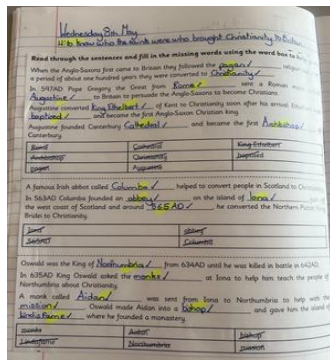 Wednesday 8th May
to know who the saints were who brought Christianity to Britain
Read through the sentences and fill in the missing words using the word box to
When the Anglo-Saxons first came to Britain they followed the pagan
a period of about one hundred years they were converted to Christianity
In 597AD Pope Gregory the Great from Rome sent a Roman
Augustine to Britain to persuade the Anglo-Saxons to become Christians.
Augustine converted King Ethelbert of Kent to Christianity soon after his arrival.
baptised and became the first Anglo-Saxon Christian king.
Augustine founded Canterbury Cathedral and became the first Archbishop
Canterbury.
Rome Cathedral King Ethelbert
Archbishop Christianity baptised
pagan Augustine
A famous Irish abbot called Columba helped to convert people in Scotland to
In 563AD Columba founded an abbey on the island of Iona
the west coast of Scotland and around 565AD he converted the Northern
Brides to Christianity.
Iona abbey
565AD Columba
Oswald was the King of Northumbria from 634AD until he was killed in battle in 642AD.
In 635AD King Oswald asked the monks at Iona to help him teach the people of
Northumbria about Christianity.
A monk called Aidan was sent from Iona to Northumbria to help with the
mission Oswald made Aidan into a bishop and gave him the island of
Lindisfarne where he founded a monastery.
monks Aidan bishop
Lindisfarne Northumbria mission